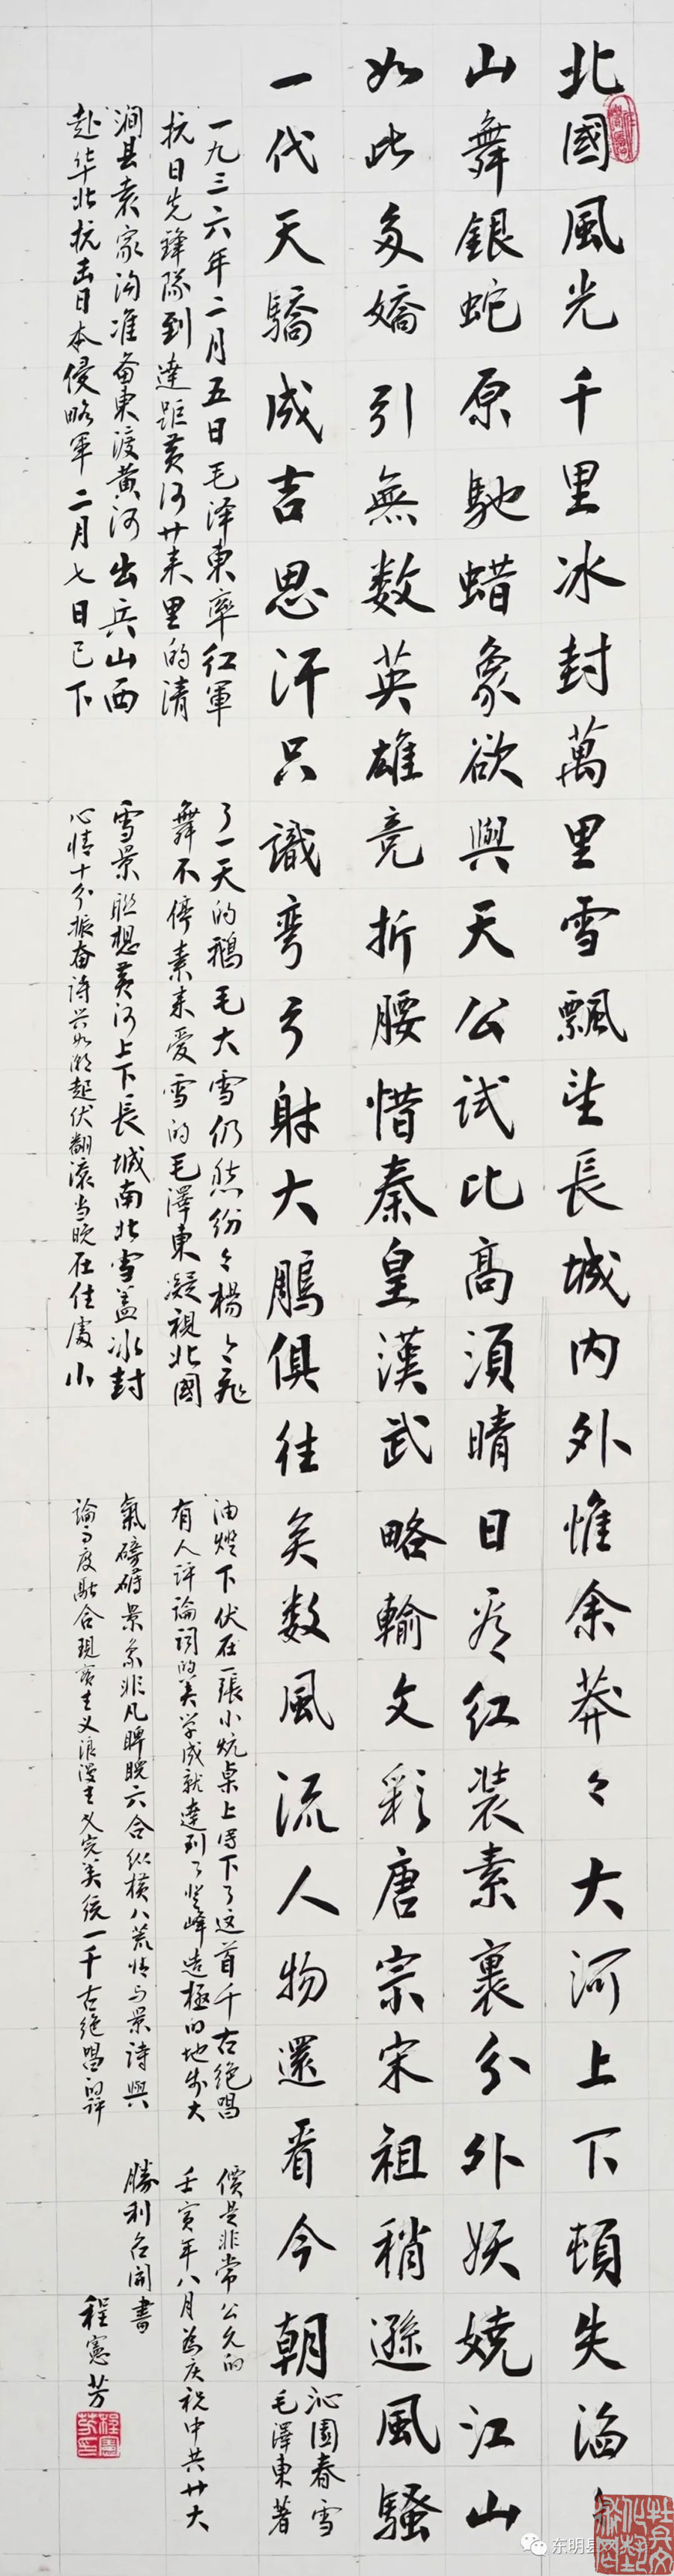 北國風光千里冰封萬里雪飄望長城内外惟余莽々大河上下頓失滔々
山舞銀蛇原馳蜡象欲與天公試比高須晴日看红装素裹分外妖娆江山
如此多嬌引無数英雄竞折腰惜秦皇漢武略輸文彩唐宗宋祖稍遜風騷
一代天驕成吉思汗只識彎弓射大鵰俱往矣数風流人物還看今朝
沁園春雪
毛澤東著
一九三六年二月五日毛泽東率红軍
抗日先鋒隊到達距黄河廿来里的清
涧县袁家沟准备東渡黄河出兵山西
赴华北抗击日本侵略軍二月七日已下
了一天的鹅毛大雪仍然纷々楊々飛
舞不停素来爱雪的毛澤東凝視北國
雪景联想黄河上下長城南北雪盖冰封
心情十分振奋诗兴如潮起伏翻滚当晚在住處小
油燈下伏在一張小炕桌上写下了这首千古绝唱
有人评論词的美学成就達到了登峰造極的地步大
氣磅礴景象非凡睥睨六合纵横八荒情与景詩與
論高度融合現實主义浪漫主义完美统一千古绝唱的评
價是非常公允的
壬寅年八月為庆祝中共廿大
勝利召開書
程憲芳
东明县